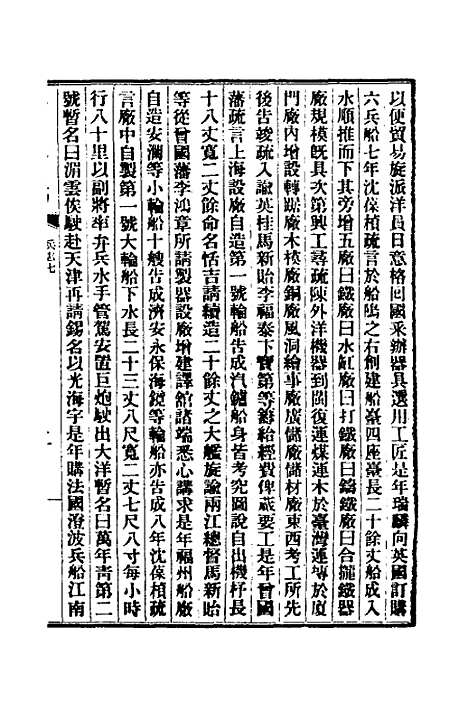 以便貿易旋派洋員日意格回國采辦器具選用工匠是年瑞麟向英國訂購
六兵船七年沈葆楨疏言於船隖之右刱建船臺四座臺長二十餘丈船成入
水順推而下其旁增五廠曰鐵廠曰水缸廠曰打鐵廠曰鑄鐵廠曰合攏鐵器
廠規模旣具次第興工尋疏陳外洋機器到閩復運煤運木於臺灣運塼於廈
門廠內增設轉鋸廠木模廠銅廠風洞繪事廠廣儲廠儲材廠東西考工所先
後告竣疏入諭英桂馬新貽李福泰卞寶第等籌給經費俾蕆要工是年曾國
藩疏言上海設廠自造第一號輪船告成汽鑪船身皆考究圖說自出機杼長
十八丈寬二丈餘命名恬吉請續造二十餘丈之大艦旋諭兩江總督馬新貽
等從曾國藩李鴻章所請製器設廠增建譯舘諸端悉心講求是年福州船廠
自造安瀾等小輪船十艘告成濟安永保海鏡等輪船亦告成八年沈葆楨疏
言廠中自製第一號大輪船下水長二十三丈八尺寬二丈七尺八寸每小時
行八十里以副將率弁兵水手管駕安置巨炮駛出大洋暫名曰萬年靑第二
號暫名曰湄雲俟駛赴天津再請錫名以光海宇是年購法國澄波兵船江南
兵志七